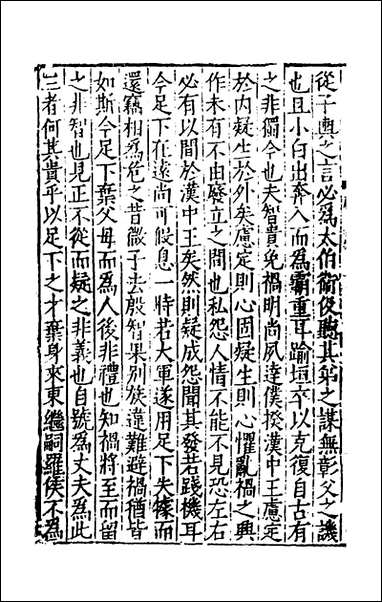 從子輿之言必爲太伯衞伋聽其弟之謀無彰父之譏
也且小白出奔入而爲霸重耳踰垣卒以克復自古有
之非獨今也夫智貴免禍明尚夙達僕揆漢中王慮定
於內疑生於外矣慮定則心固疑生則心懼亂禍之興
作未有不由廢立之間也私怨人情不能不見恐左右
必有以間於漢中王矣然則疑成怨聞其發若踐機耳
今足下在遠尚可假息一時若大軍遂用足下失據而
還竊相爲危之昔微子去殷智果別族違難避禍猶皆
如斯今足下棄父母而爲人後非禮也知禍將至而留
之非智也見正不從而疑之非義也自號爲丈夫爲此
三者何其貴乎以足下之才棄身來東繼嗣羅侯不爲